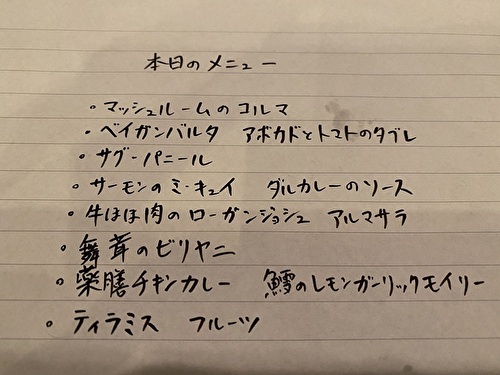 本日のメニュー
・マッシュルームのコルマ
・ベイガンバルタ アボカドとトマトのタブレ
・サグーパニール
・サーモンのミ・キュイ ダルカレーのソース
・牛ほほ肉のローガンジョシュ アルマサラ
・舞茸のビリヤニ
・薬膳チキンカレー 鱈のレモンガーリックモイリー
・ティラミス フルーツ